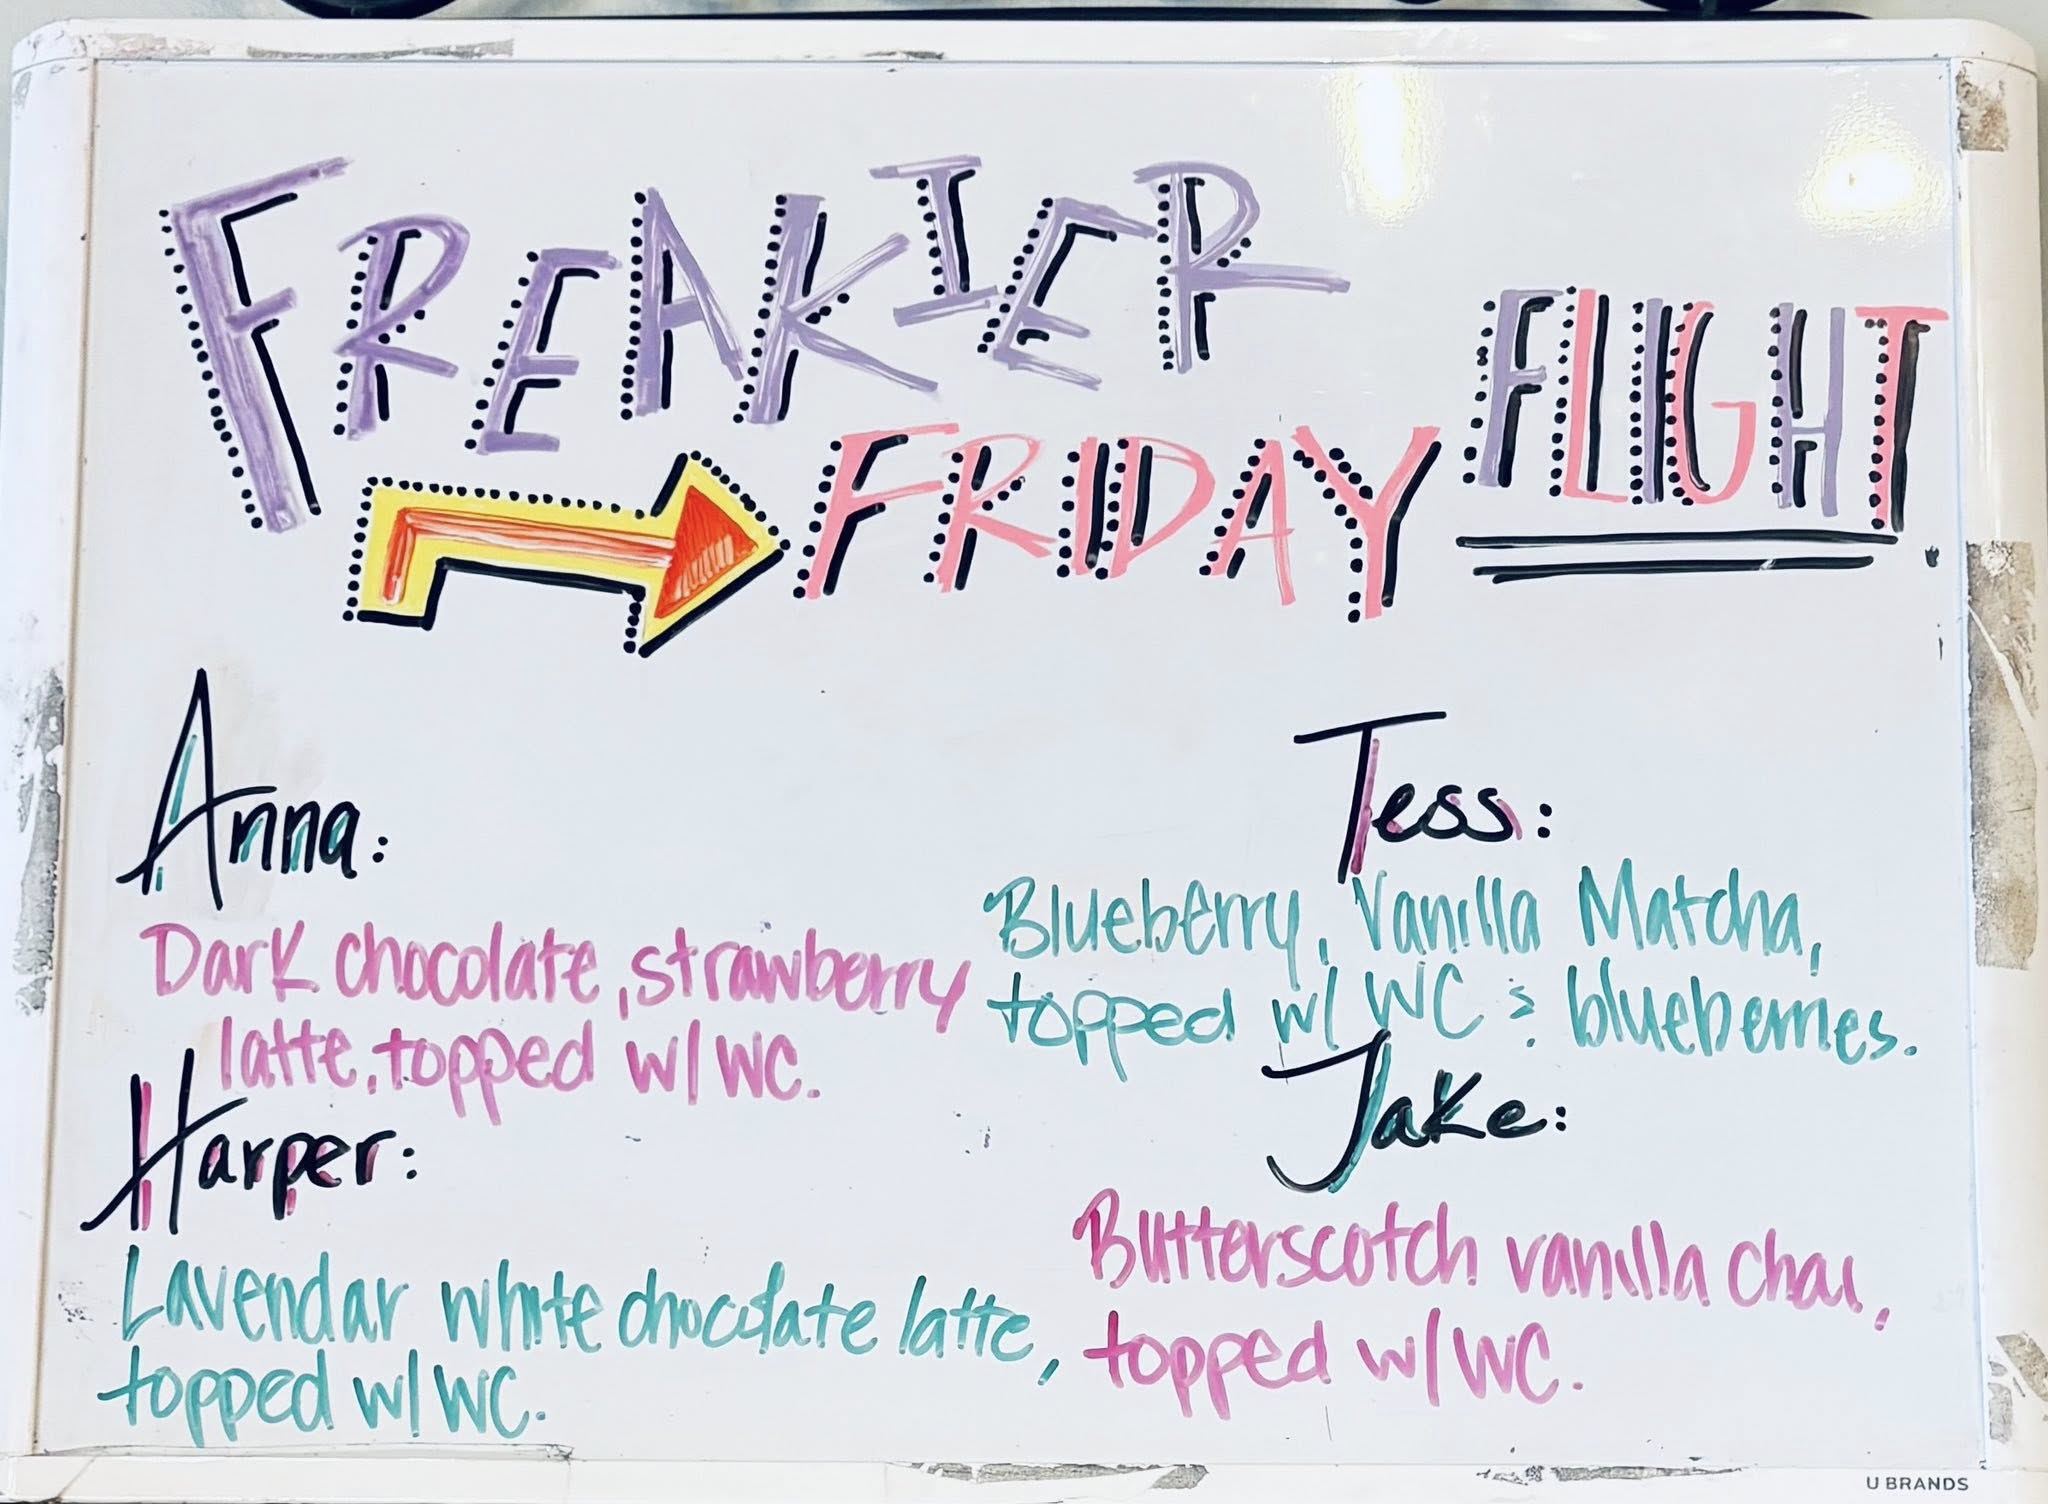 FREAKIER
FRIDAY
FLIGHT
Anna:
Dark chocolate, strawberry
latte, topped w/ WC.
Tess:
Blueberry, Vanilla Matcha,
topped w/ WC & blueberries.
Harper:
Lavendar white chocolate latte,
topped w/ WC.
Jake:
Butterscotch vanilla chai,
topped w/ WC.
U BRANDS